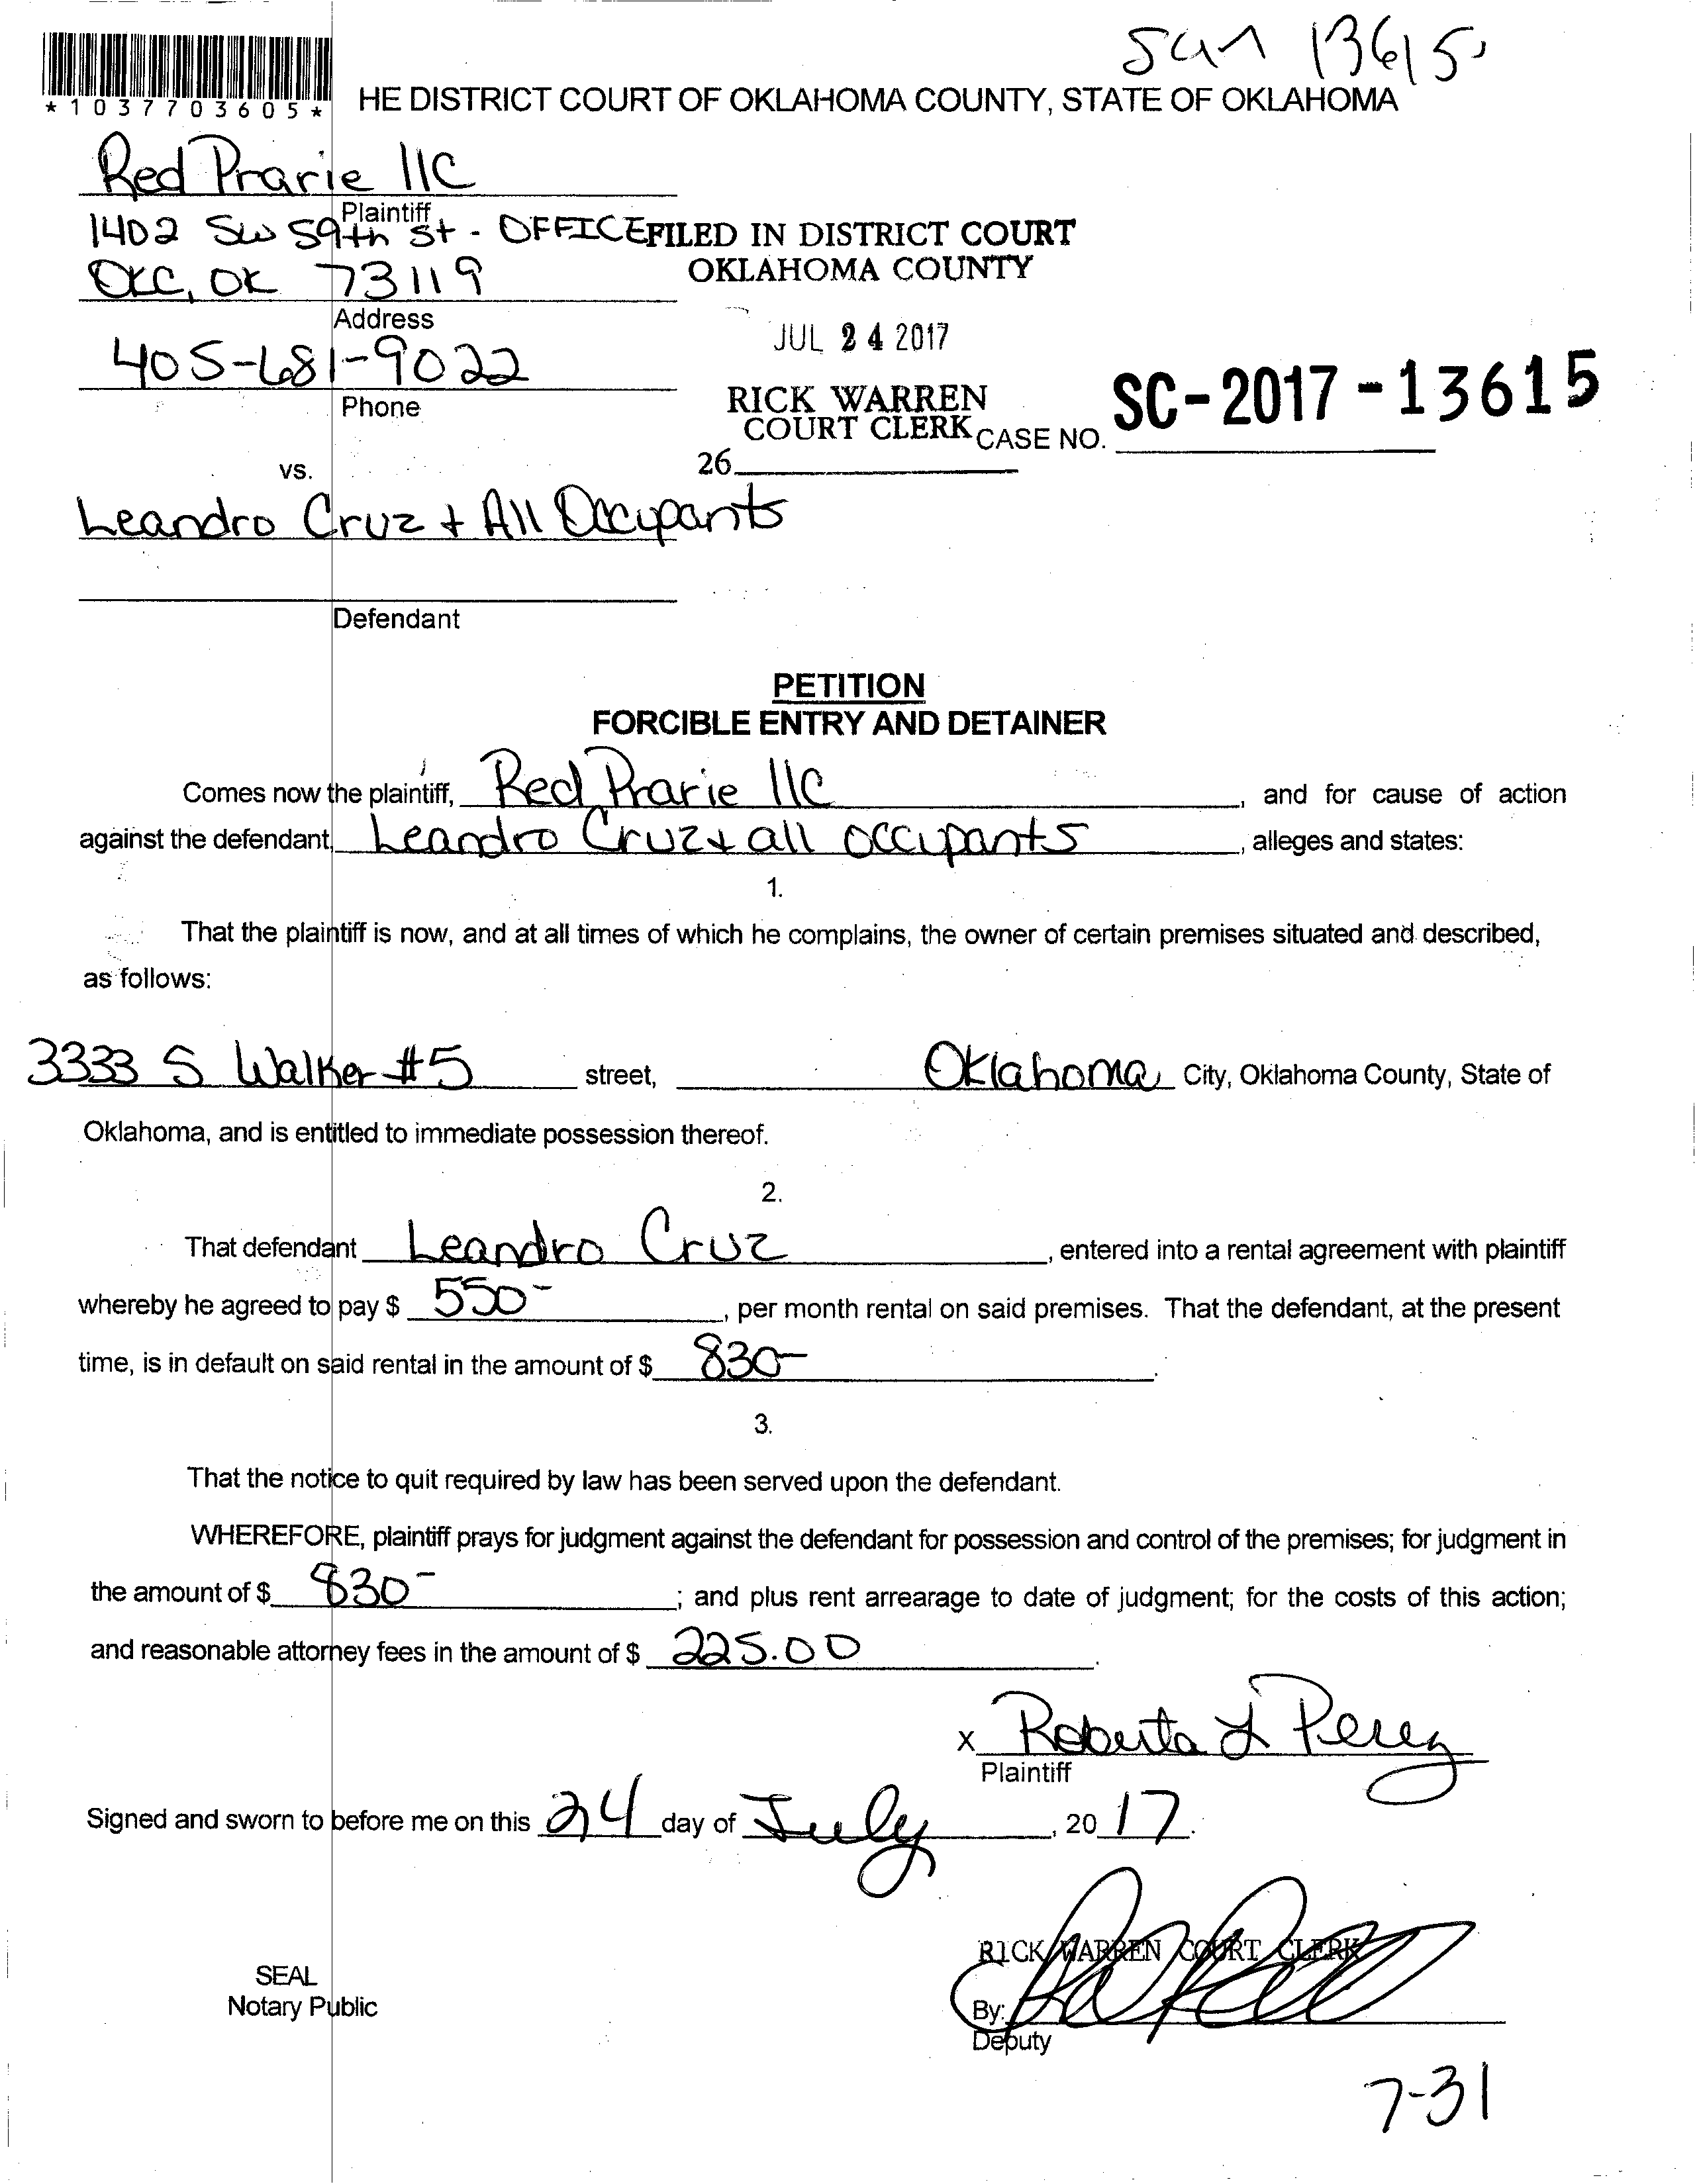 13615
*1037703605*
HE DISTRICT COURT OF OKLAHOMA COUNTY, STATE OF OKLAHOMA
Red Prarie llC
Plaintiff
1402 SW 59th St - OFFICE
FILED IN DISTRICT COURT
OKC, OK 73119
OKLAHOMA COUNTY
Address
JUL 24 2017
405-681-9022
Phone
RICK WARREN
COURT CLERK
CASE NO. SC-2017-13615
26
vs.
Leandro Cruz + All Occupants
Defendant
PETITION
FORCIBLE ENTRY AND DETAINER
Comes now the plaintiff, Red Prarie llC, and for cause of action
against the defendant, Leandro Cruz + all occupants, alleges and states:
1.
That the plaintiff is now, and at all times of which he complains, the owner of certain premises situated and described,
as follows:
3333 S Walker #5 street, Oklahoma City, Oklahoma County, State of
Oklahoma, and is entitled to immediate possession thereof.
2.
That defendant Leandro Cruz, entered into a rental agreement with plaintiff
whereby he agreed to pay $ 550-, per month rental on said premises. That the defendant, at the present
time, is in default on said rental in the amount of $ 830-.
3.
That the notice to quit required by law has been served upon the defendant.
WHEREFORE, plaintiff prays for judgment against the defendant for possession and control of the premises; for judgment in
the amount of $ 830-; and plus rent arrearage to date of judgment; for the costs of this action;
and reasonable attorney fees in the amount of $ 225.00.
x Roberta L Perez
Plaintiff
Signed and sworn to before me on this 24 day of July, 2017.
RICK WARREN COURT CLERK
SEAL
Notary Public
By:
Deputy
7-31